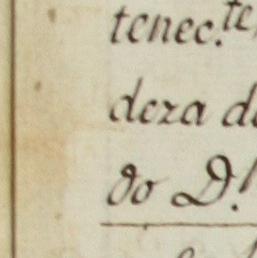 tenec.te
deza d
do D.